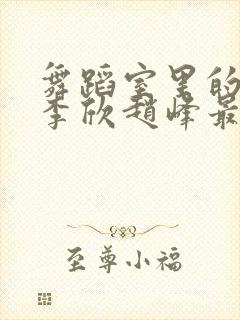 舞蹈室里的
李欣赵峰最
至尊小福